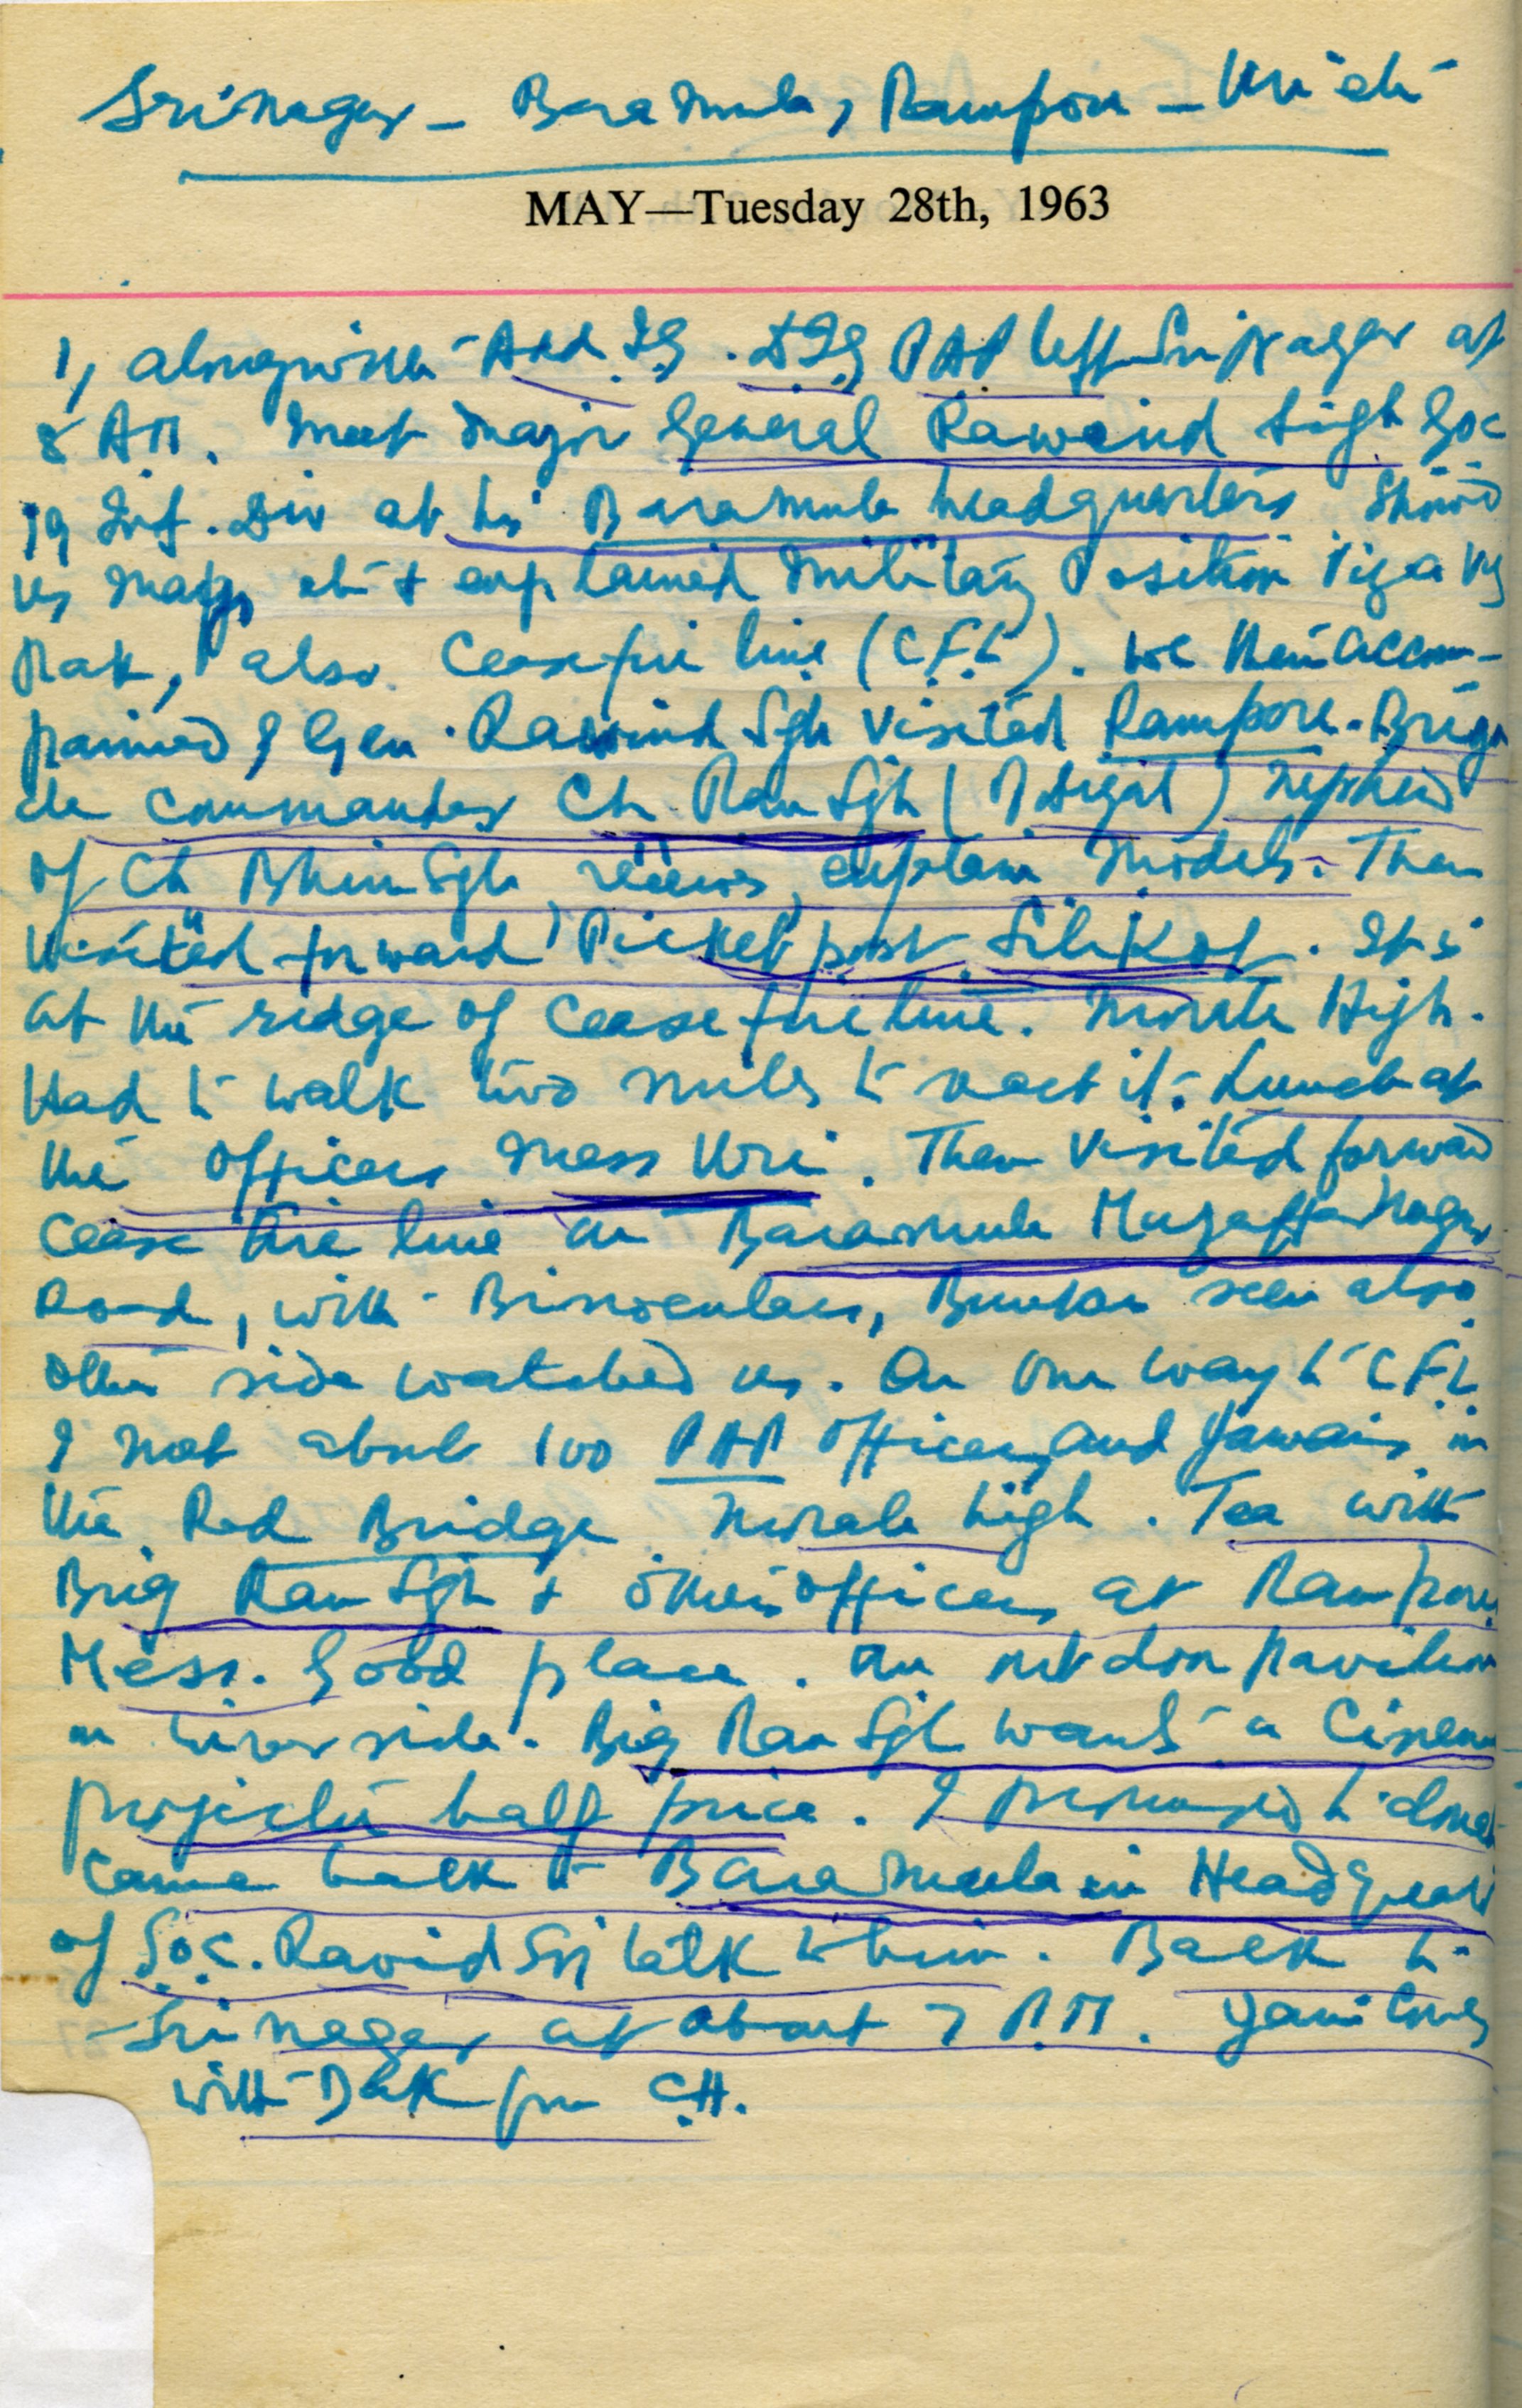 Srinagar - Baramula, Rampore - Uri etc
MAY—Tuesday 28th, 1963
I, alongwith Add IG. DIG PAP left Srinagar at
8 AM. Meet Major General Rawind Singh Goc
19 Inf. Div at his Baramula headquarters. Showed
us maps etc & explained military Position viz a viz
Pak, also Ceasefire line (C.F.L). We then accom-
panied by Gen. Rawind Sgh visited Rampore. Briga
de commander Ch Ran Sgh ( ) nephew
of Ch Bhim Sgh receives, explain models. Then
visited forward Picket post Silikot. It is
at the ridge of Cease fire line. Morale High.
Had to walk two miles to reach it. Lunch at
the officers mess Uri. Then visited forward
Cease Fire line on Baramula Muzaffarnagar
Road, with Binoculars, Bunker seen also
other side watched us. On our way to C.F.L.
I met about 100 PAP officers and Jawans in
the Red Bridge. Morale high. Tea with
Brig Ran Sgh & other officers at Rampore
Mess. Good place. An outdoor pavilion
on river side. Brig Ran Sgh wants a Cinema
projector half price. I promised to donate
Came back to Baramula in Headquart
of Goc. Ravid Sgh talk to him. Back to
Srinagar at about 7 P.M. comes
with Dak from CH.